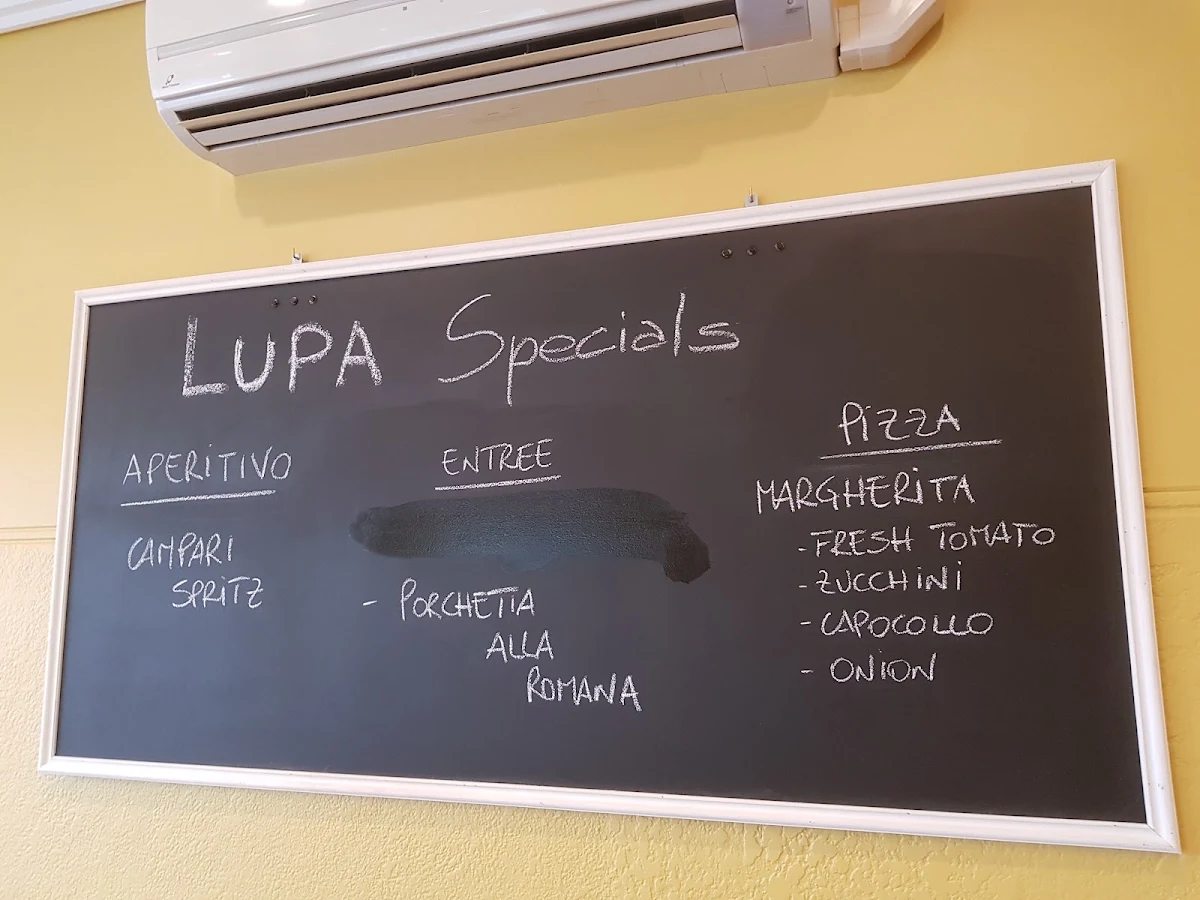 LUPA Specials
APERITIVO
CAMPARI
SPRITZ
ENTREE
- PORCHETTA
ALLA
ROMANA
PIZZA
MARGHERITA
- FRESH TOMATO
- ZUCCHINI
- CAPOCOLLO
- ONION